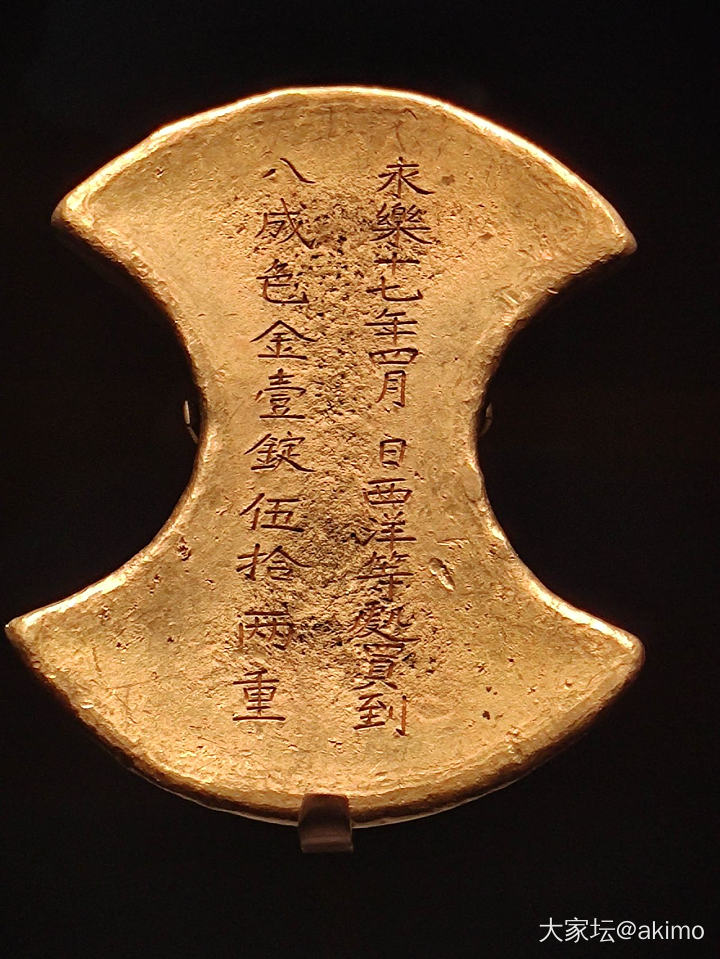 永樂十七年四月 日西洋等處買到
八成色金壹錠伍拾兩重
大家坛@akimo